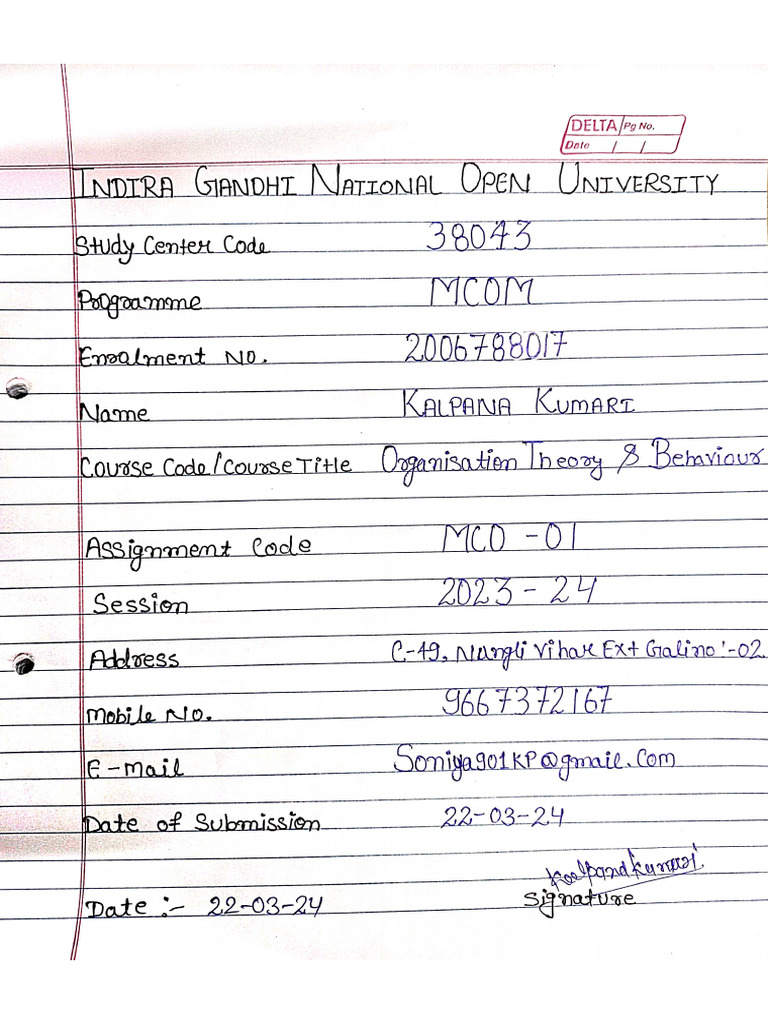 DELTA Pg No.
Date / /
INDIRA GANDHI NATIONAL OPEN UNIVERSITY
Study Center Code 38043
Programme MCOM
Enralment No. 2006788017
Name KALPANA KUMARI
Course Code/Course Title Organisation Theory & Behaviour
Assignment Code MCO -01
Session 2023-24
Address C-49, Nangli Vihar Ext Galino:-02
Mobile No. 9667372167
E-Mail Soniya901KP@gmail.com
Date of Submission 22-03-24
Kalpana Kumari
Date :- 22-03-24 Signature